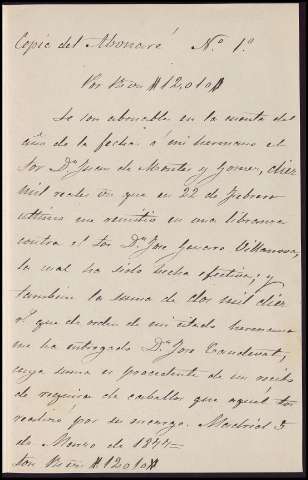 Copia del Abonaré N.º 1.º
Por Rs vn #12.010#
Le son abonables en la cuenta del
año de la fecha á mi hermano el
Sor Dn Juan de Montes y Gomez, diez
mil reales vn que en 22 de Febrero
último me remitió en una libranza
contra el Sor Dn José Genaro Villanova,
la cual ha sido hecha efectiva; y
tambien la suma de dos mil diez
rs que de orden de mi citado hermano
me ha entregado Dn José Caudevat,
cuya suma es procedente de un recibo
de requisa de caballos que aquel Sor
realizó por su encargo. Madrid 3
de Marzo de 1844=
Son Rs vn #12010#